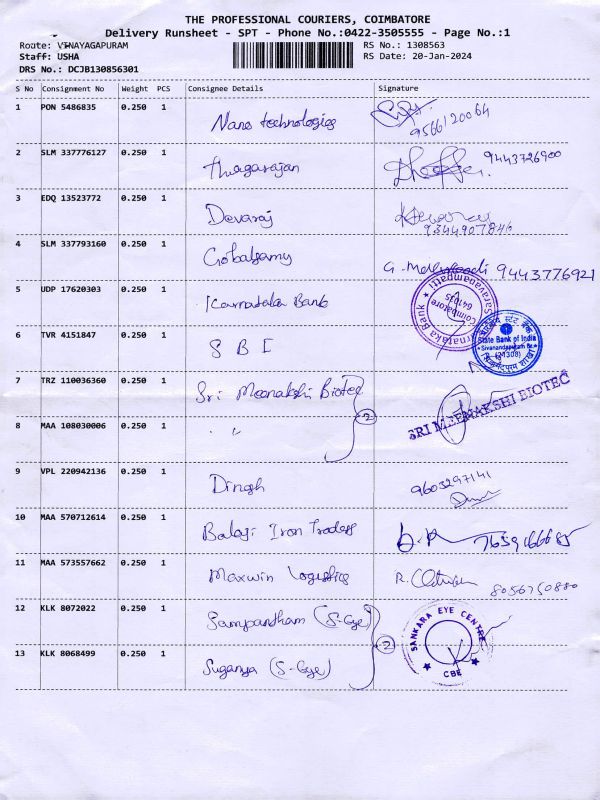 THE PROFESSIONAL COURIERS, COIMBATORE
Delivery Runsheet - SPT - Phone No.:0422-3505555 - Page No.:1
Route: VINAYAGAPURAM RS No.: 1308563
Staff: USHA RS Date: 20-Jan-2024
DRS No.: DCJB130856301
S No Consignment No Weight PCS Consignee Details Signature
1 PON 5486835 0.250 1 Nano technologies
9566120064
2 SLM 337776127 0.250 1 Thagarajan 9443726900
3 EDQ 13523772 0.250 1 Devaraj
9344907846
4 SLM 337793160 0.250 1 Gobalsamy G. 9443776921
5 UDP 17620303 0.250 1 Karnataka Bank Karnataka Bank Saravanampatti Coimbatore 641035
6 TVR 4151847 0.250 1 SBI State Bank of India Sivanandapuram Br. (21308)
7 TRZ 110036360 0.250 1 Sri Meenakshi Biotec SRI MEENAKSHI BIOTEC
8 MAA 108030006 0.250 1 " 2
9 VPL 220942136 0.250 1 Dinesh 9603297141
10 MAA 570712614 0.250 1 Balaji Iron Traders 7659166685
11 MAA 573557662 0.250 1 Maxwin Logistics R. 8056750880
12 KLK 8072022 0.250 1 Sampantham (S-Eye) SANKARA EYE CENTRE CBE
13 KLK 8068499 0.250 1 Suganya (S-Eye) 2